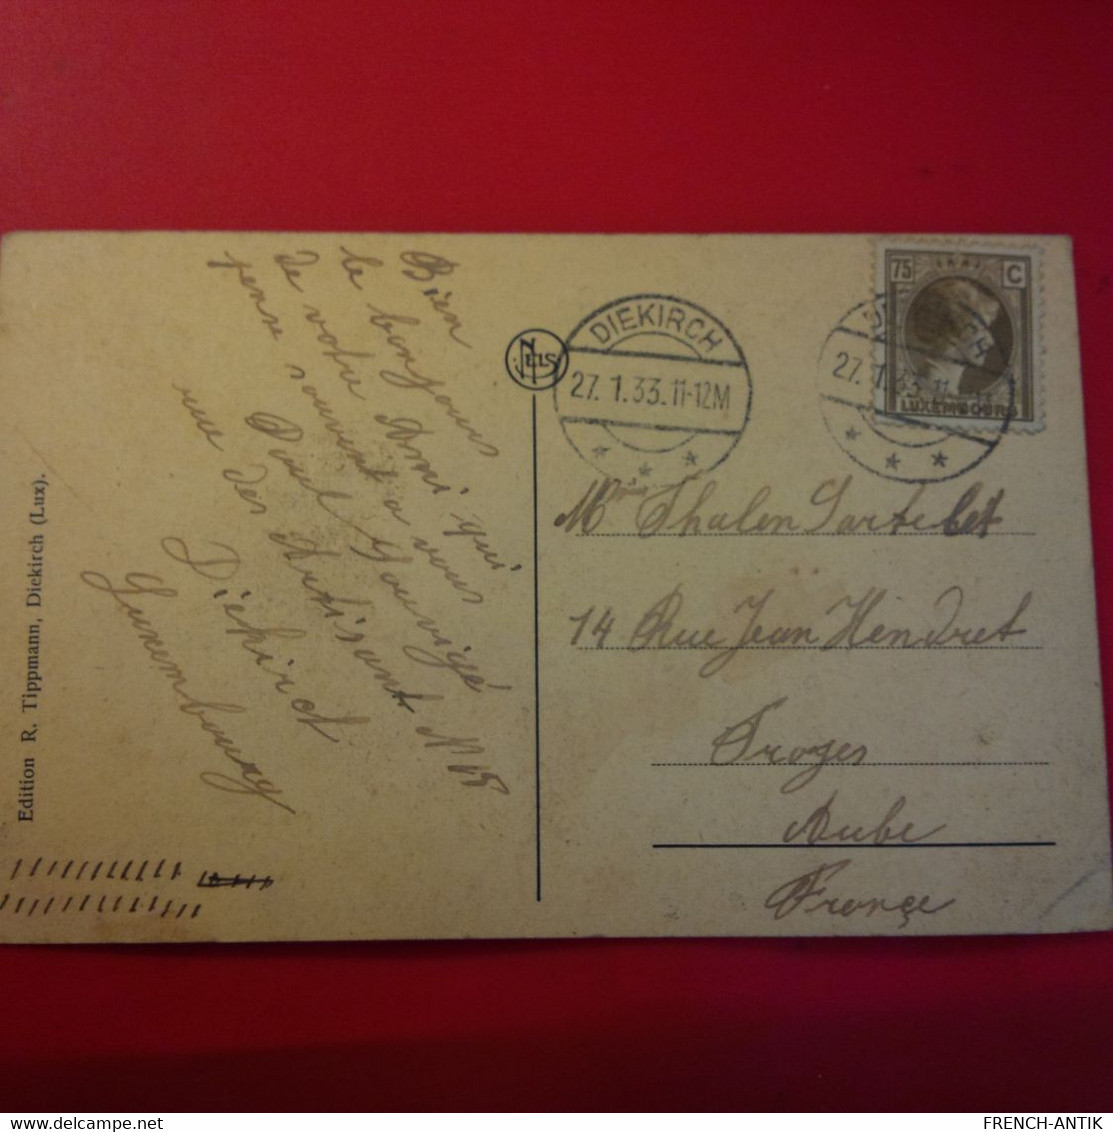 Bien
le bonjours
de votre Ami qui
pense souvent a vous
Paul
rue des Artisant N 15
Diekirch
Luxembourg
Edition R. Tippmann, Diekirch (Lux).
NELS
DIEKIRCH
27. 1. 33. 11-12M
75 C
LUXEMBOURG
DIEKIRCH
27. 1. 33. 11-12M
Mme Thalen Sartelet
14 Rue Jean Hendret
Troyes
Aube
Françe
FRENCH-ANTIK